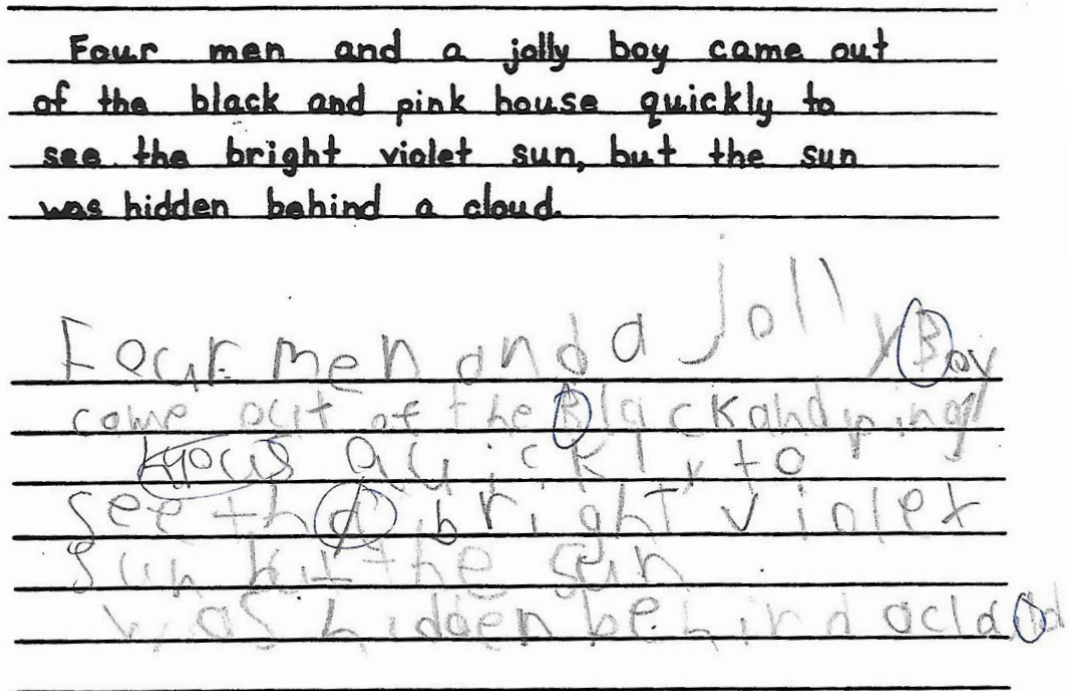 Four men and a jolly boy came out
of the black and pink house quickly to
see the bright violet sun, but the sun
was hidden behind a cloud.
Four men and a jolly Boy
came out of the Black and
quickly to
see the bright violet
sun but the sun
was hidden behind a